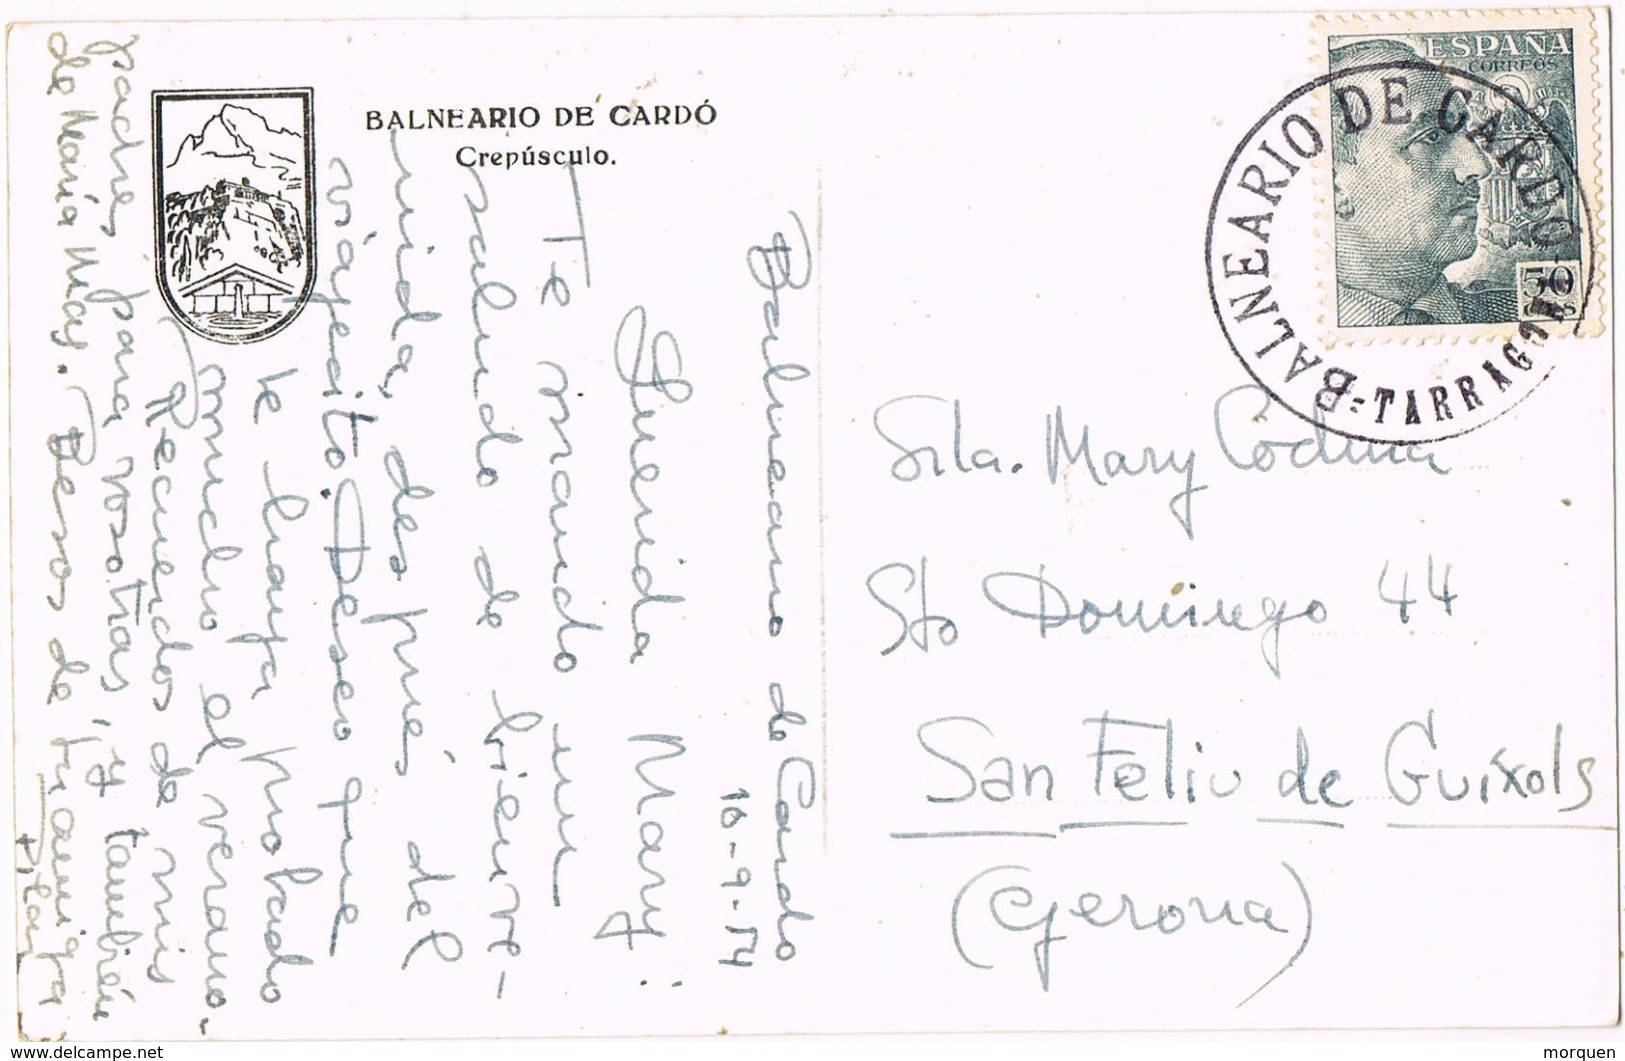 BALNEARIO DE CARDÓ
Crepúsculo.
Balneario de Cardó
16-9-54
Querida Mary:
Te mando un
saludo de bienve-
nida, después del
viajecito. Deseo que
te haya probado
mucho el verano.
Recuerdos de mis
padres para vosotras, y también
de María Nieves. Besos de tu amiga
Pilar
ESPAÑA
CORREOS
50
CTS
BALNEARIO DE CARDO
-TARRAGONA-
Srta. Mary Codina
Sto Domingo 44
San Feliu de Guíxols
(Gerona)
delcampe.net
morquen